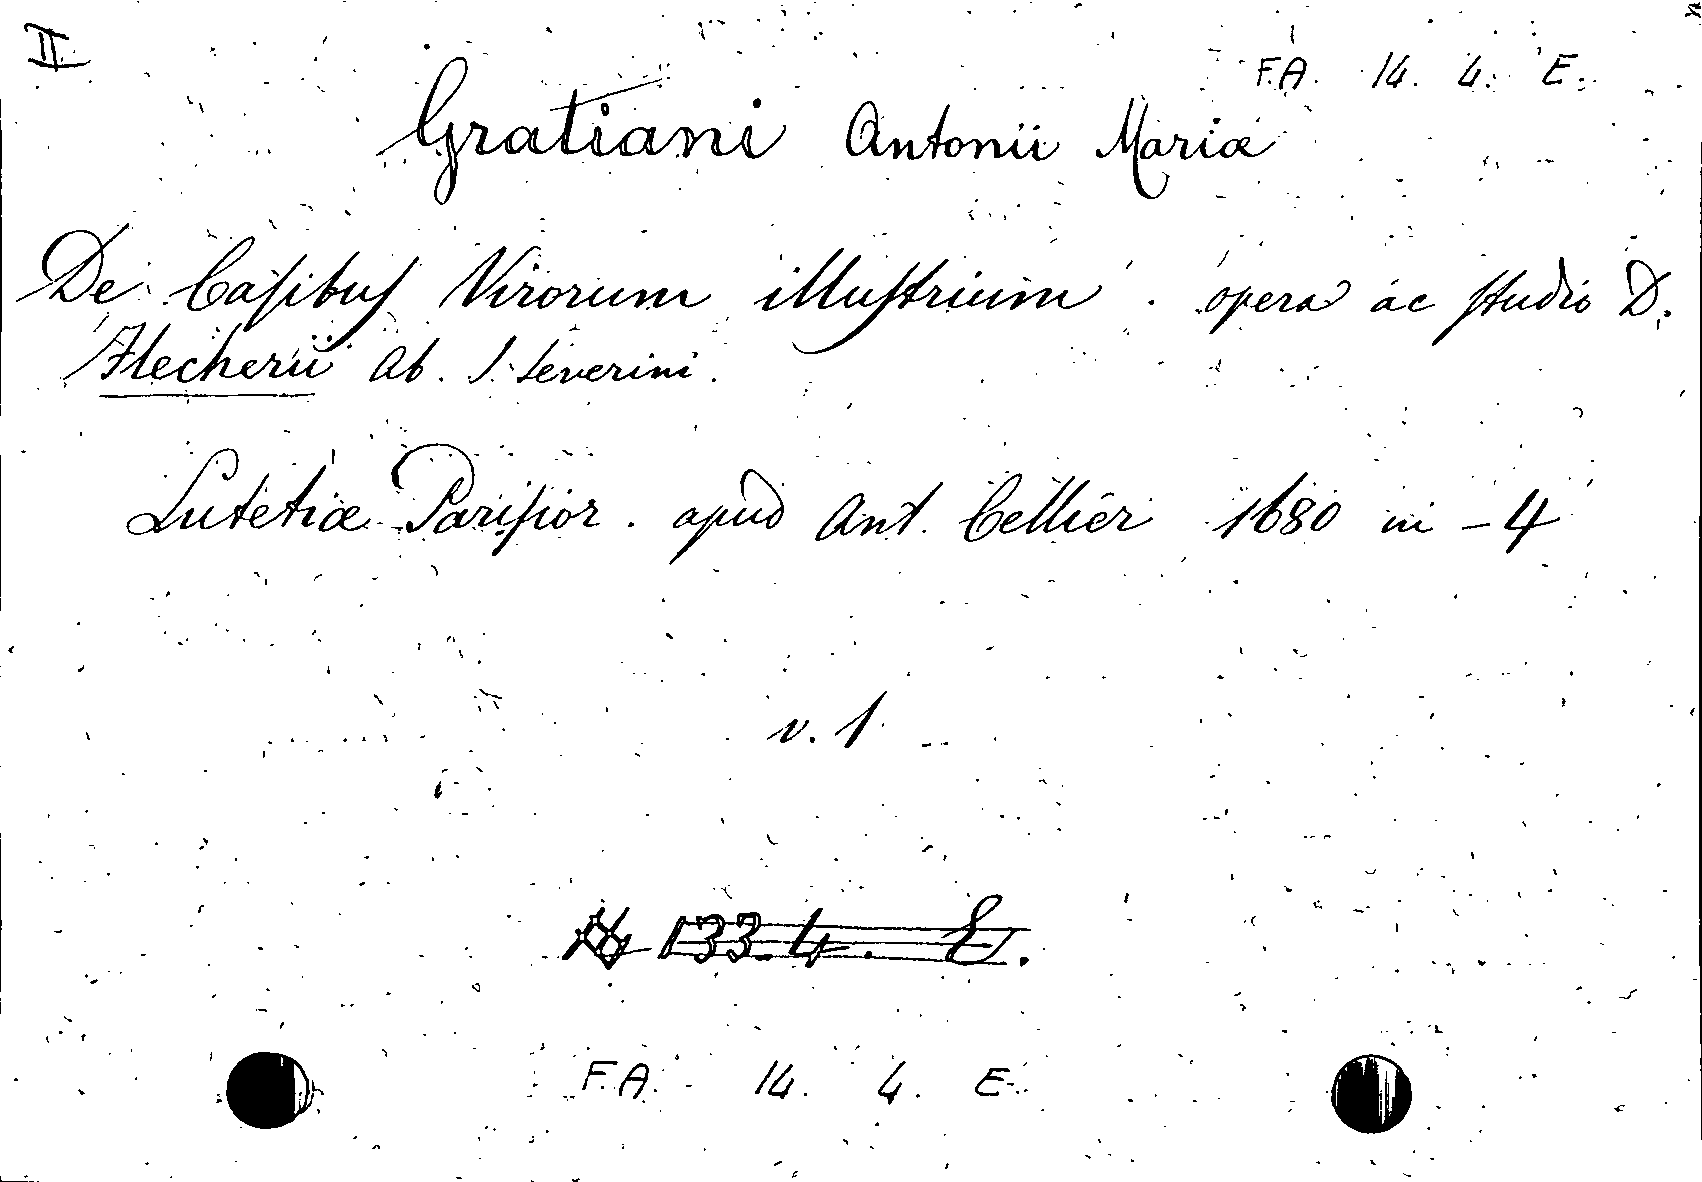 II
F.A. 14. 4. E.
Gratiani Antonii Mariæ
De Caſibuſ Virorum illuſtrium. opera ac ſtudio D.
Flecherii Ab. S. Severini.
Lutetiæ Pariſior. apud Ant. Cellier 1680 in-4
v. 1
133. 4. E.
F.A. 14. 4. E.